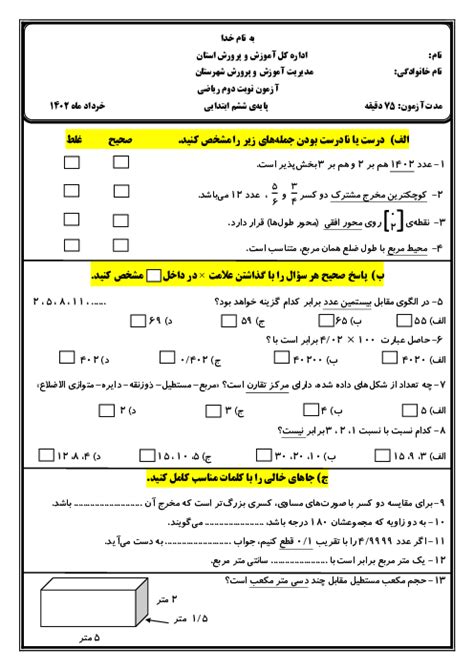 به نام خدا
نام: اداره کل آموزش و پرورش استان
نام خانوادگی: مدیریت آموزش و پرورش شهرستان
آزمون نوبت دوم ریاضی
مدت آزمون: ۷۵ دقیقه پایه‌ی ششم ابتدایی خرداد ماه ۱۴۰۲
الف) درست یا نادرست بودن جمله‌های زیر را مشخص کنید. صحیح غلط
۱- عدد ۱۴۰۲ هم بر ۲ و هم بر ۳ بخش‌پذیر است.
۲- کوچکترین مخرج مشترک دو کسر ۳/۴ و ۵/۶ ، عدد ۱۲ می‌باشد.
۳- نقطه‌ی [۰ ۲] روی محور افقی (محور طول‌ها) قرار دارد.
۴- محیط مربع با طول ضلع همان مربع، متناسب است.
ب) پاسخ صحیح هر سؤال را با گذاشتن علامت × در داخل مشخص کنید.
۵- در الگوی مقابل بیستمین عدد برابر کدام گزینه خواهد بود؟ ۲،۵،۸،۱۱،......
الف) ۵۵ ب) ۶۵ ج) ۵۹ د) ۶۹
۶- حاصل عبارت ۱۰۰ × ۴/۰۲ برابر است با؟
الف) ۴۰۲۰ ب) ۴۰۲۰۰ ج) ۰/۴۰۲ د) ۴۰۲
۷- چه تعداد از شکل‌های داده شده، دارای مرکز تقارن است؟ ،مربع- مستطیل- ذوزنقه- دایره- متوازی الاضلاع،
الف) ۵ ب) ۴ ج) ۳ د) ۲
۸- کدام نسبت با نسبت ۱ ، ۲ ، ۳ برابر نیست؟
الف) ۳، ۹، ۱۵ ب) ۱۰، ۲۰، ۳۰ ج) ۵، ۱۰، ۱۵ د) ۴، ۸، ۱۲
ج) جاهای خالی را با کلمات مناسب کامل کنید.
۹- برای مقایسه دو کسر با صورت‌های مساوی، کسری بزرگ‌تر است که مخرج آن ........................ باشد.
۱۰- به دو زاویه که مجموعشان ۱۸۰ درجه باشد، ..................... می‌گویند.
۱۱- اگر عدد ۴/۹۹۹۹ را با تقریب ۰/۱ قطع کنیم، جواب ........................ به دست می‌آید.
۱۲- یک متر مربع برابر است با .................... سانتی متر مربع.
۱۳- حجم مکعب مستطیل مقابل چند دسی متر مکعب است؟
۲ متر
۱/۵ متر
۵ متر